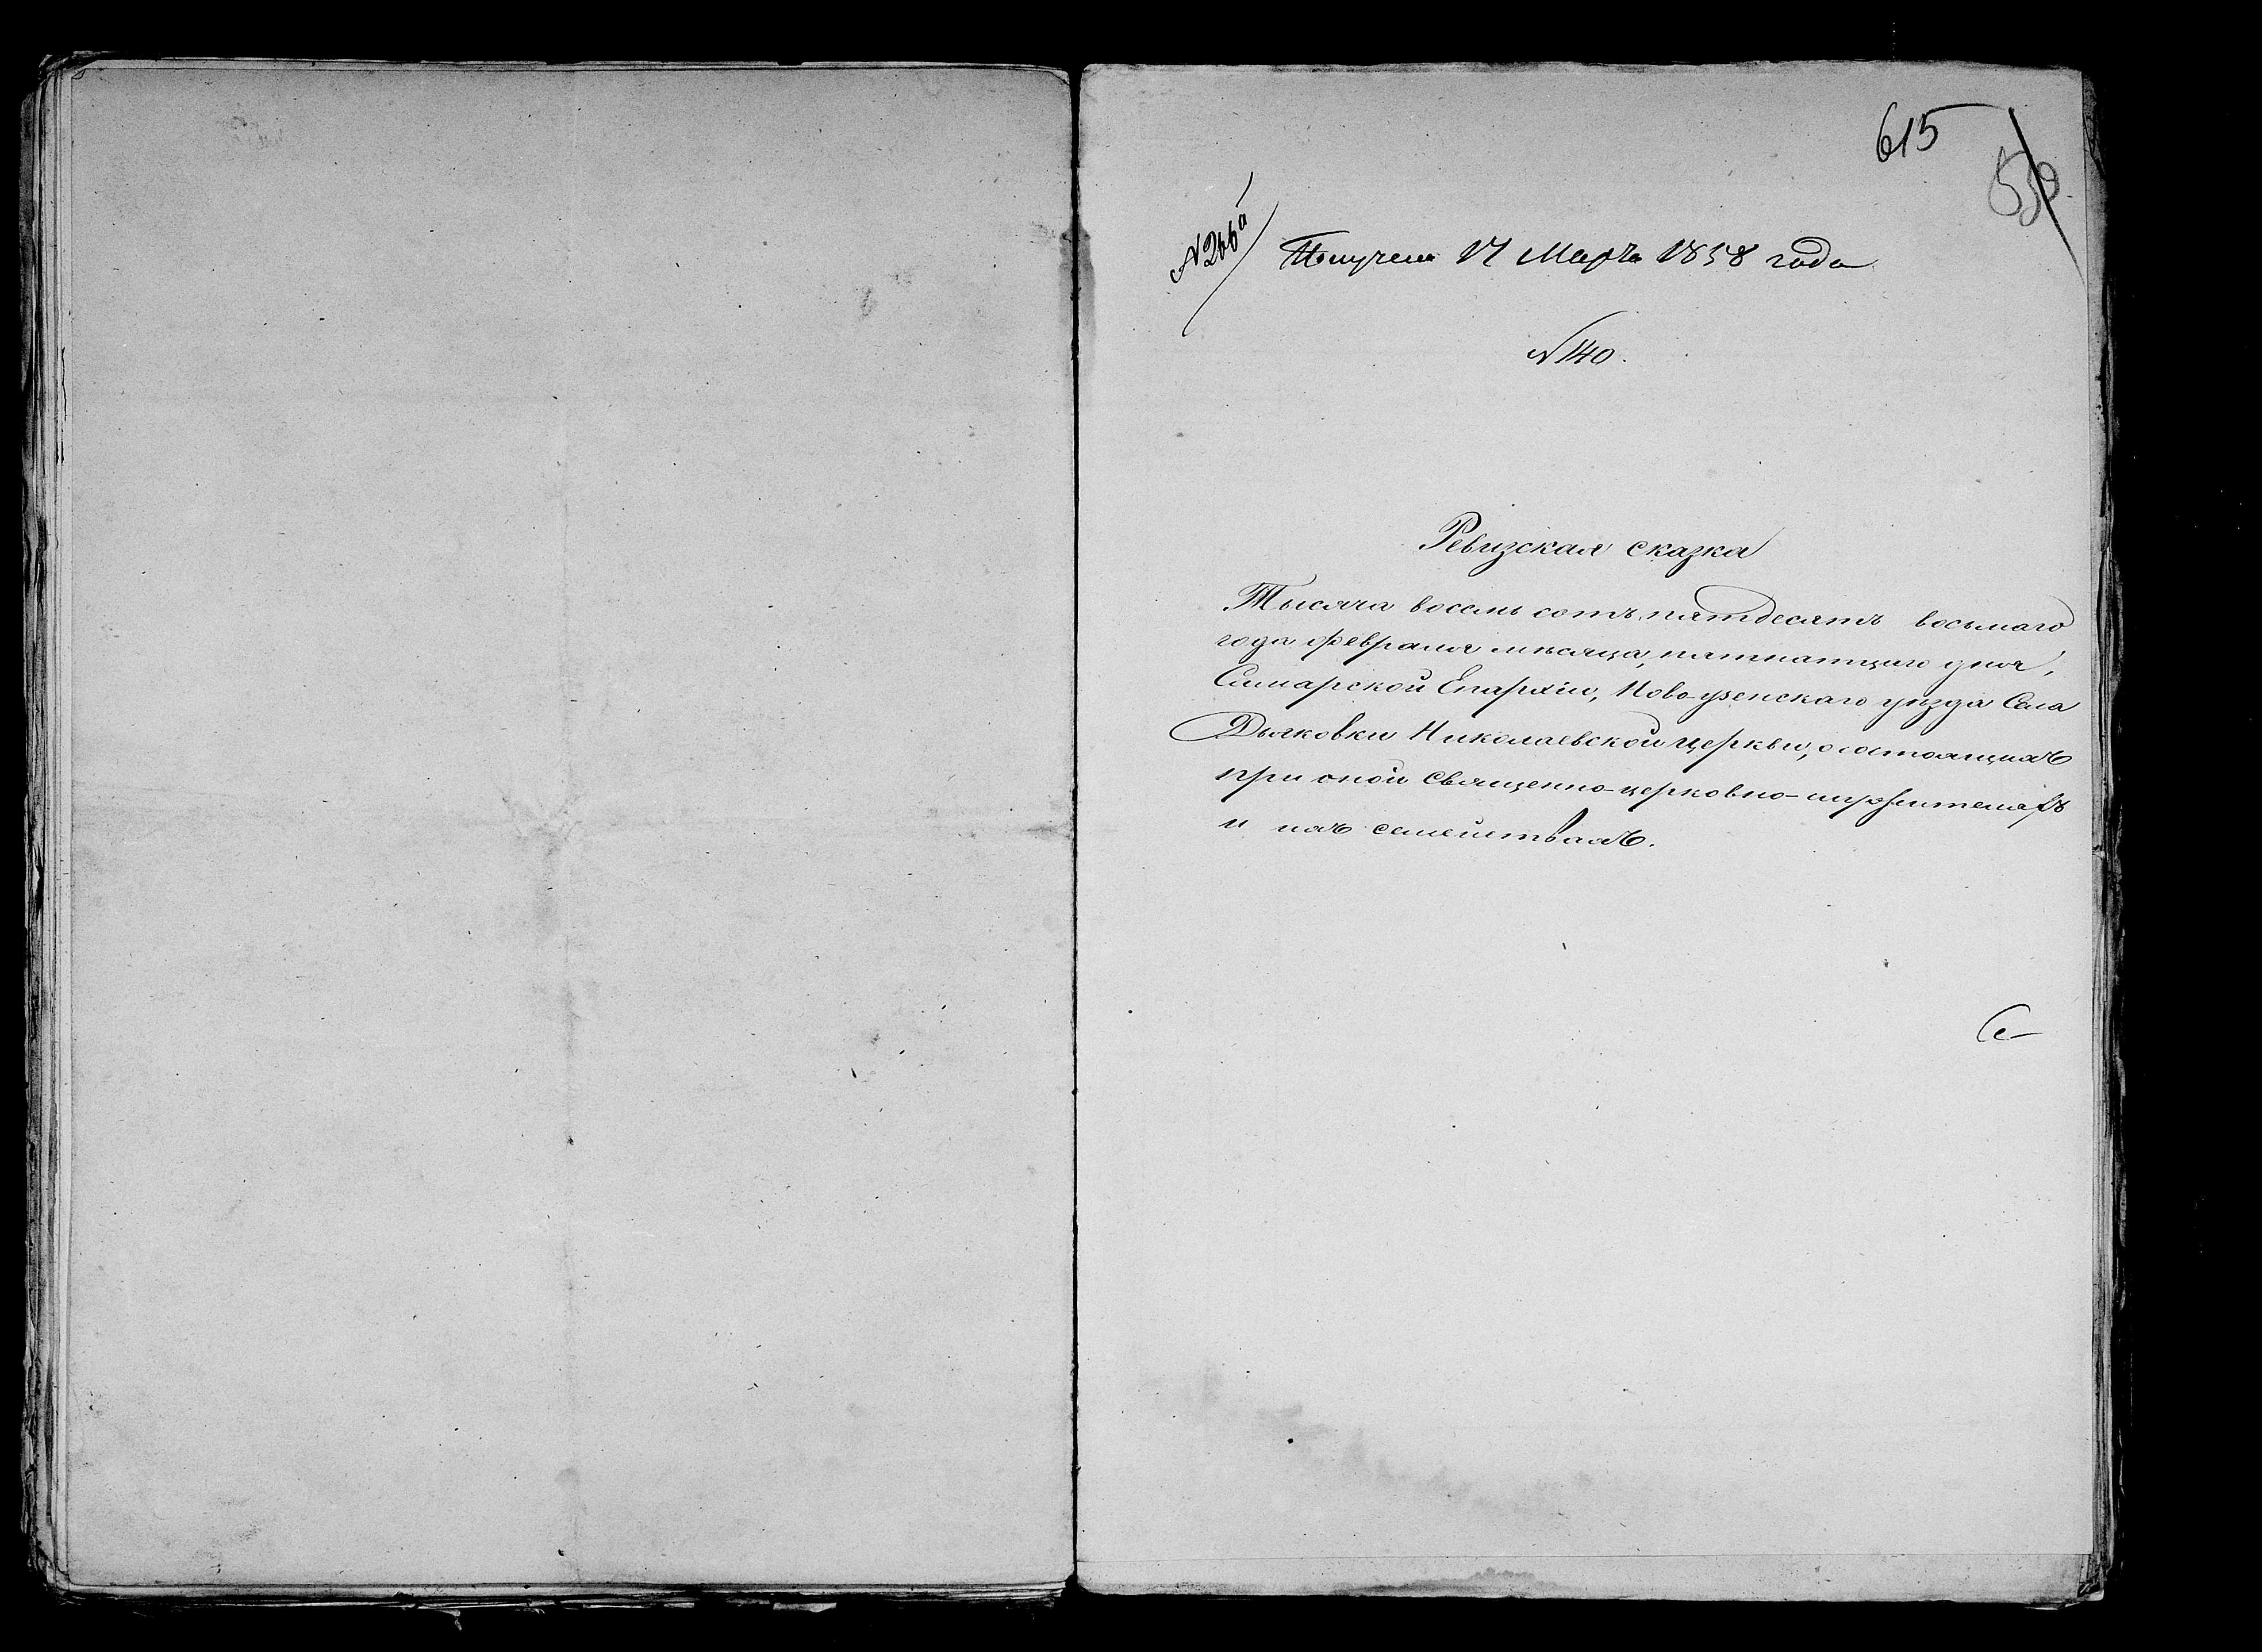 615
N 266а
Получена 17 Марта 1858 года
N 140.
Ревизская сказка
Тысяча восемь сотъ пятдесятъ восьмаго
года февраля мѣсяца, пятнатцаго дня,
Самарской Епархіи, Новоузенскаго уѣзда Села
Дьяковки Николаевской церкви, о состоящихъ
при оной священно-церковно-служителяхъ
и ихъ семействахъ.